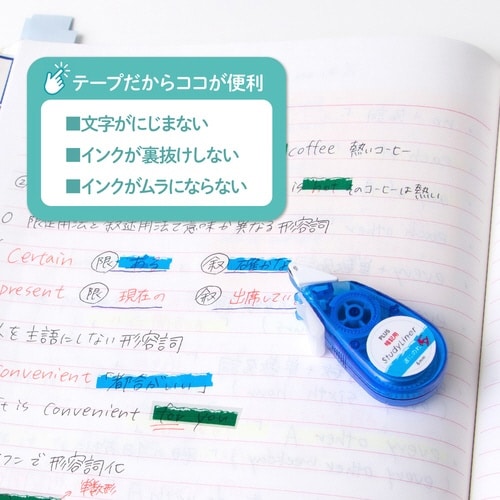 テープだからココが便利
■文字がにじまない
■インクが裏抜けしない
■インクがムラにならない
coffee 熱いコーヒー
is hot そのコーヒーは熱い
限定用法と叙述用法で意味が異なる形容詞
Certain 限 ある 叙 確かな
present 限 現在の 叙 出席してい
を主語にしない形容詞
onvenient 「都合がいい」
It is convenient for you
で形容詞化
PLUS
暗記用
StudyLiner
6mm